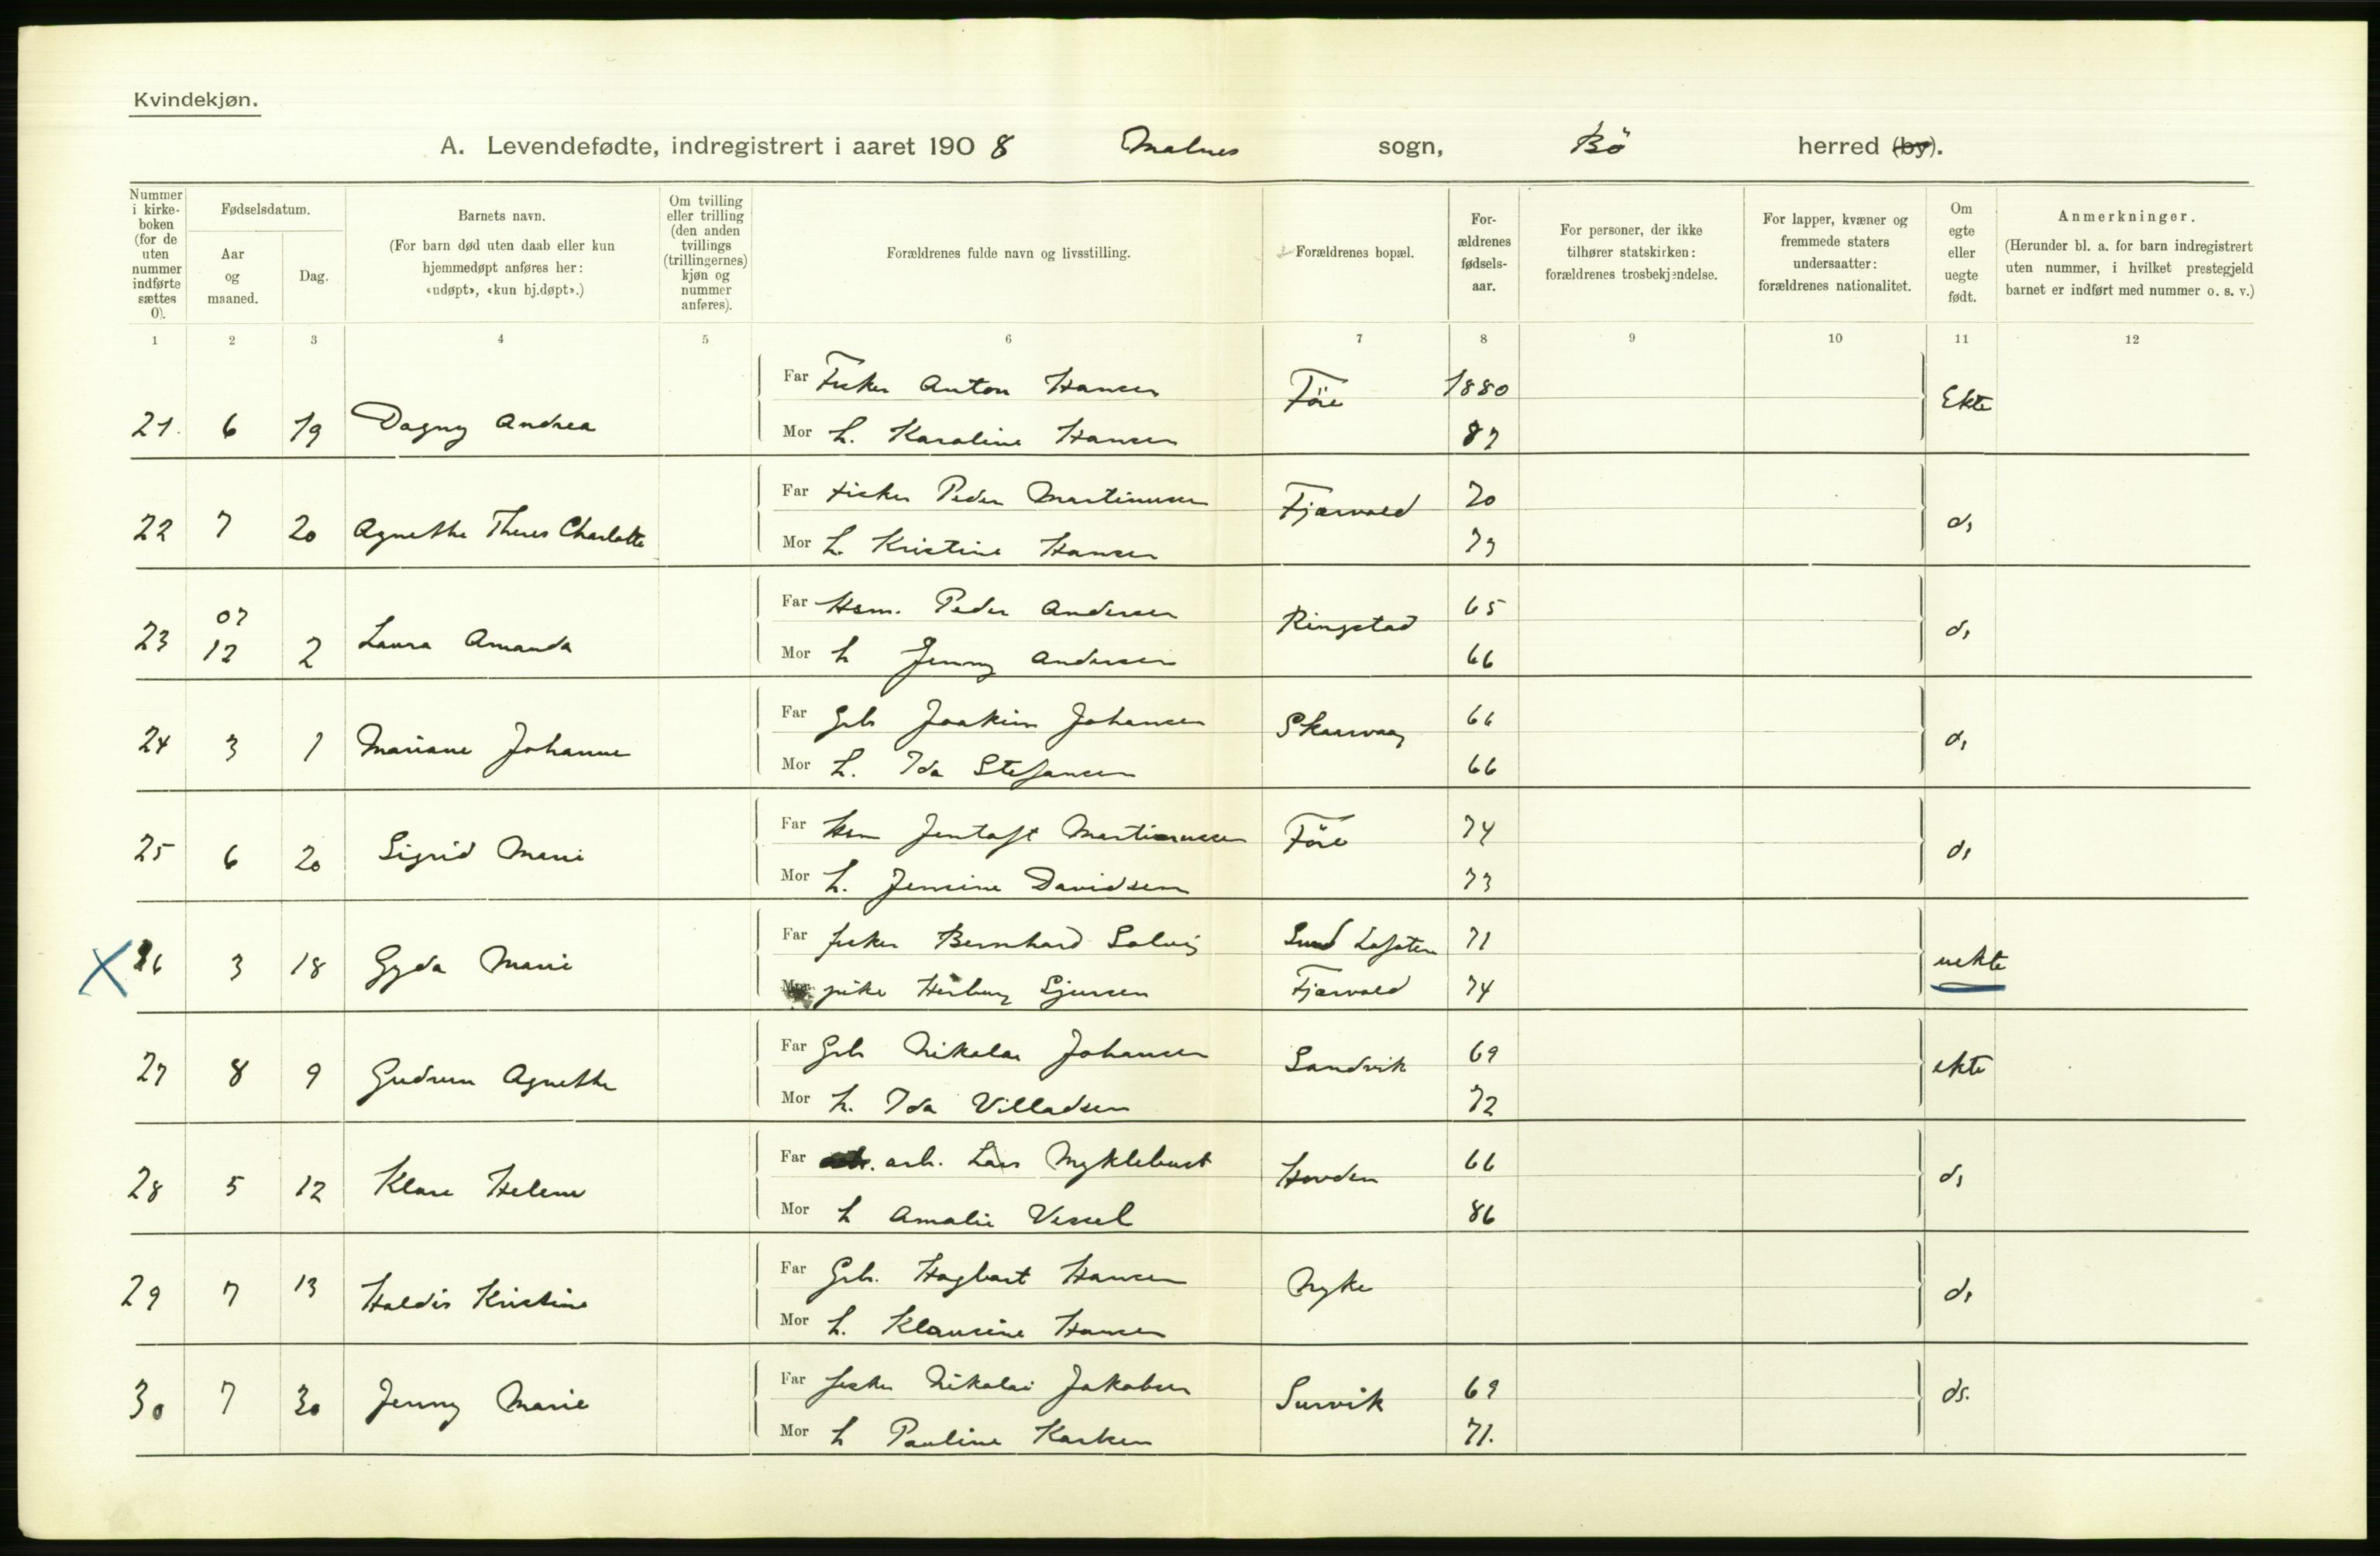 Kvindekjøn.
A. Levendefødte, indregistrert i aaret 1908 Malnes sogn, Bö herred (by).
Nummer i kirke-boken (for de uten nummer indførte sættes 0).
Fødselsdatum.
Aar og maaned.
Dag.
Barnets navn.
(For barn død uten daab eller kun hjemmedøpt anføres her: «udøpt», «kun hj.døpt».)
Om tvilling eller trilling (den anden tvillings (trillingernes) kjøn og nummer anføres).
Forældrenes fulde navn og livsstilling.
Forældrenes bopæl.
For-ældrenes fødsels-aar.
For personer, der ikke tilhører statskirken: forældrenes trosbekjendelse.
For lapper, kvæner og fremmede staters undersaatter: forældrenes nationalitet.
Om egte eller uegte født.
Anmerkninger.
(Herunder bl. a. for barn indregistrert uten nummer, i hvilket prestegjeld barnet er indført med nummer o. s. v.)
1 2 3 4 5 6 7 8 9 10 11 12
Far Fisker Anton Hansen Före 1880 Ekte
21. 6 19 Dagny Andrea
Mor h. Karoline Hansen 87
Far Fisker Peder Martinussen Fjærvold 70
22 7 20 Agnethe Theres Charlotte ds
Mor h. Kristine Hansen 73
Far Hsm. Peder Andersen Ringstad 65
23 07 12 2 Laura Amanda ds
Mor h Jenny Andersen 66
Far Grb Joakim Johansen Skaarvaag 66
24 3 1 Mariane Johanne ds
Mor h. Ida Stefansen 66
Far Hsm Jentoft Martinussen Före 74
25 6 20 Sigrid Marie ds
Mor h. Jensine Davidsen 73
Far fisker Bernhard Solvig Sund Lofoten 71
X 26 3 18 Gyda Marie uekte
Mor pike Herborg Sjursen Fjærvold 74
Far Grb Nikolai Johansen Sandvik 69
27 8 9 Gudrun Agnethe ekte
Mor h. Ida Villadsen 72
Far arb. Lars Myklebust Hovden 66
28 5 12 Klara Helene ds
Mor h Amalie Vessel 86
Far Grb. Hagbart Hansen Nyke
29 7 13 Haldis Kristine ds
Mor h. Klausine Hansen
Far fisker Nikolai Jakobsen Survik 69
30 7 30 Jenny Marie ds.
Mor h Pauline Karlsen 71.